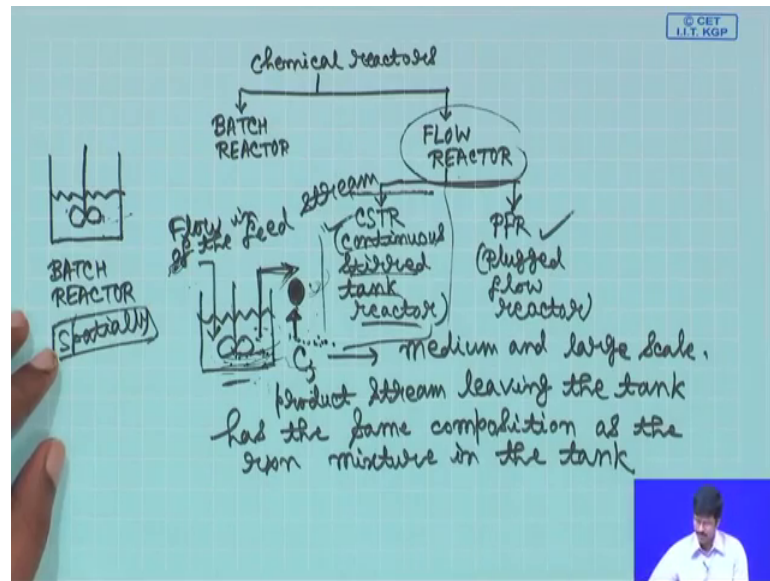 © CET
I.I.T. KGP
Chemical reactors
BATCH
REACTOR
FLOW
REACTOR
BATCH
REACTOR
Spatially
Flow in
of the feed
stream
CSTR
(continuous
stirred
tank
reactor)
PFR
(plugged
flow
reactor)
medium and large scale.
product stream leaving the tank
has the same composition as the
rxn mixture in the tank